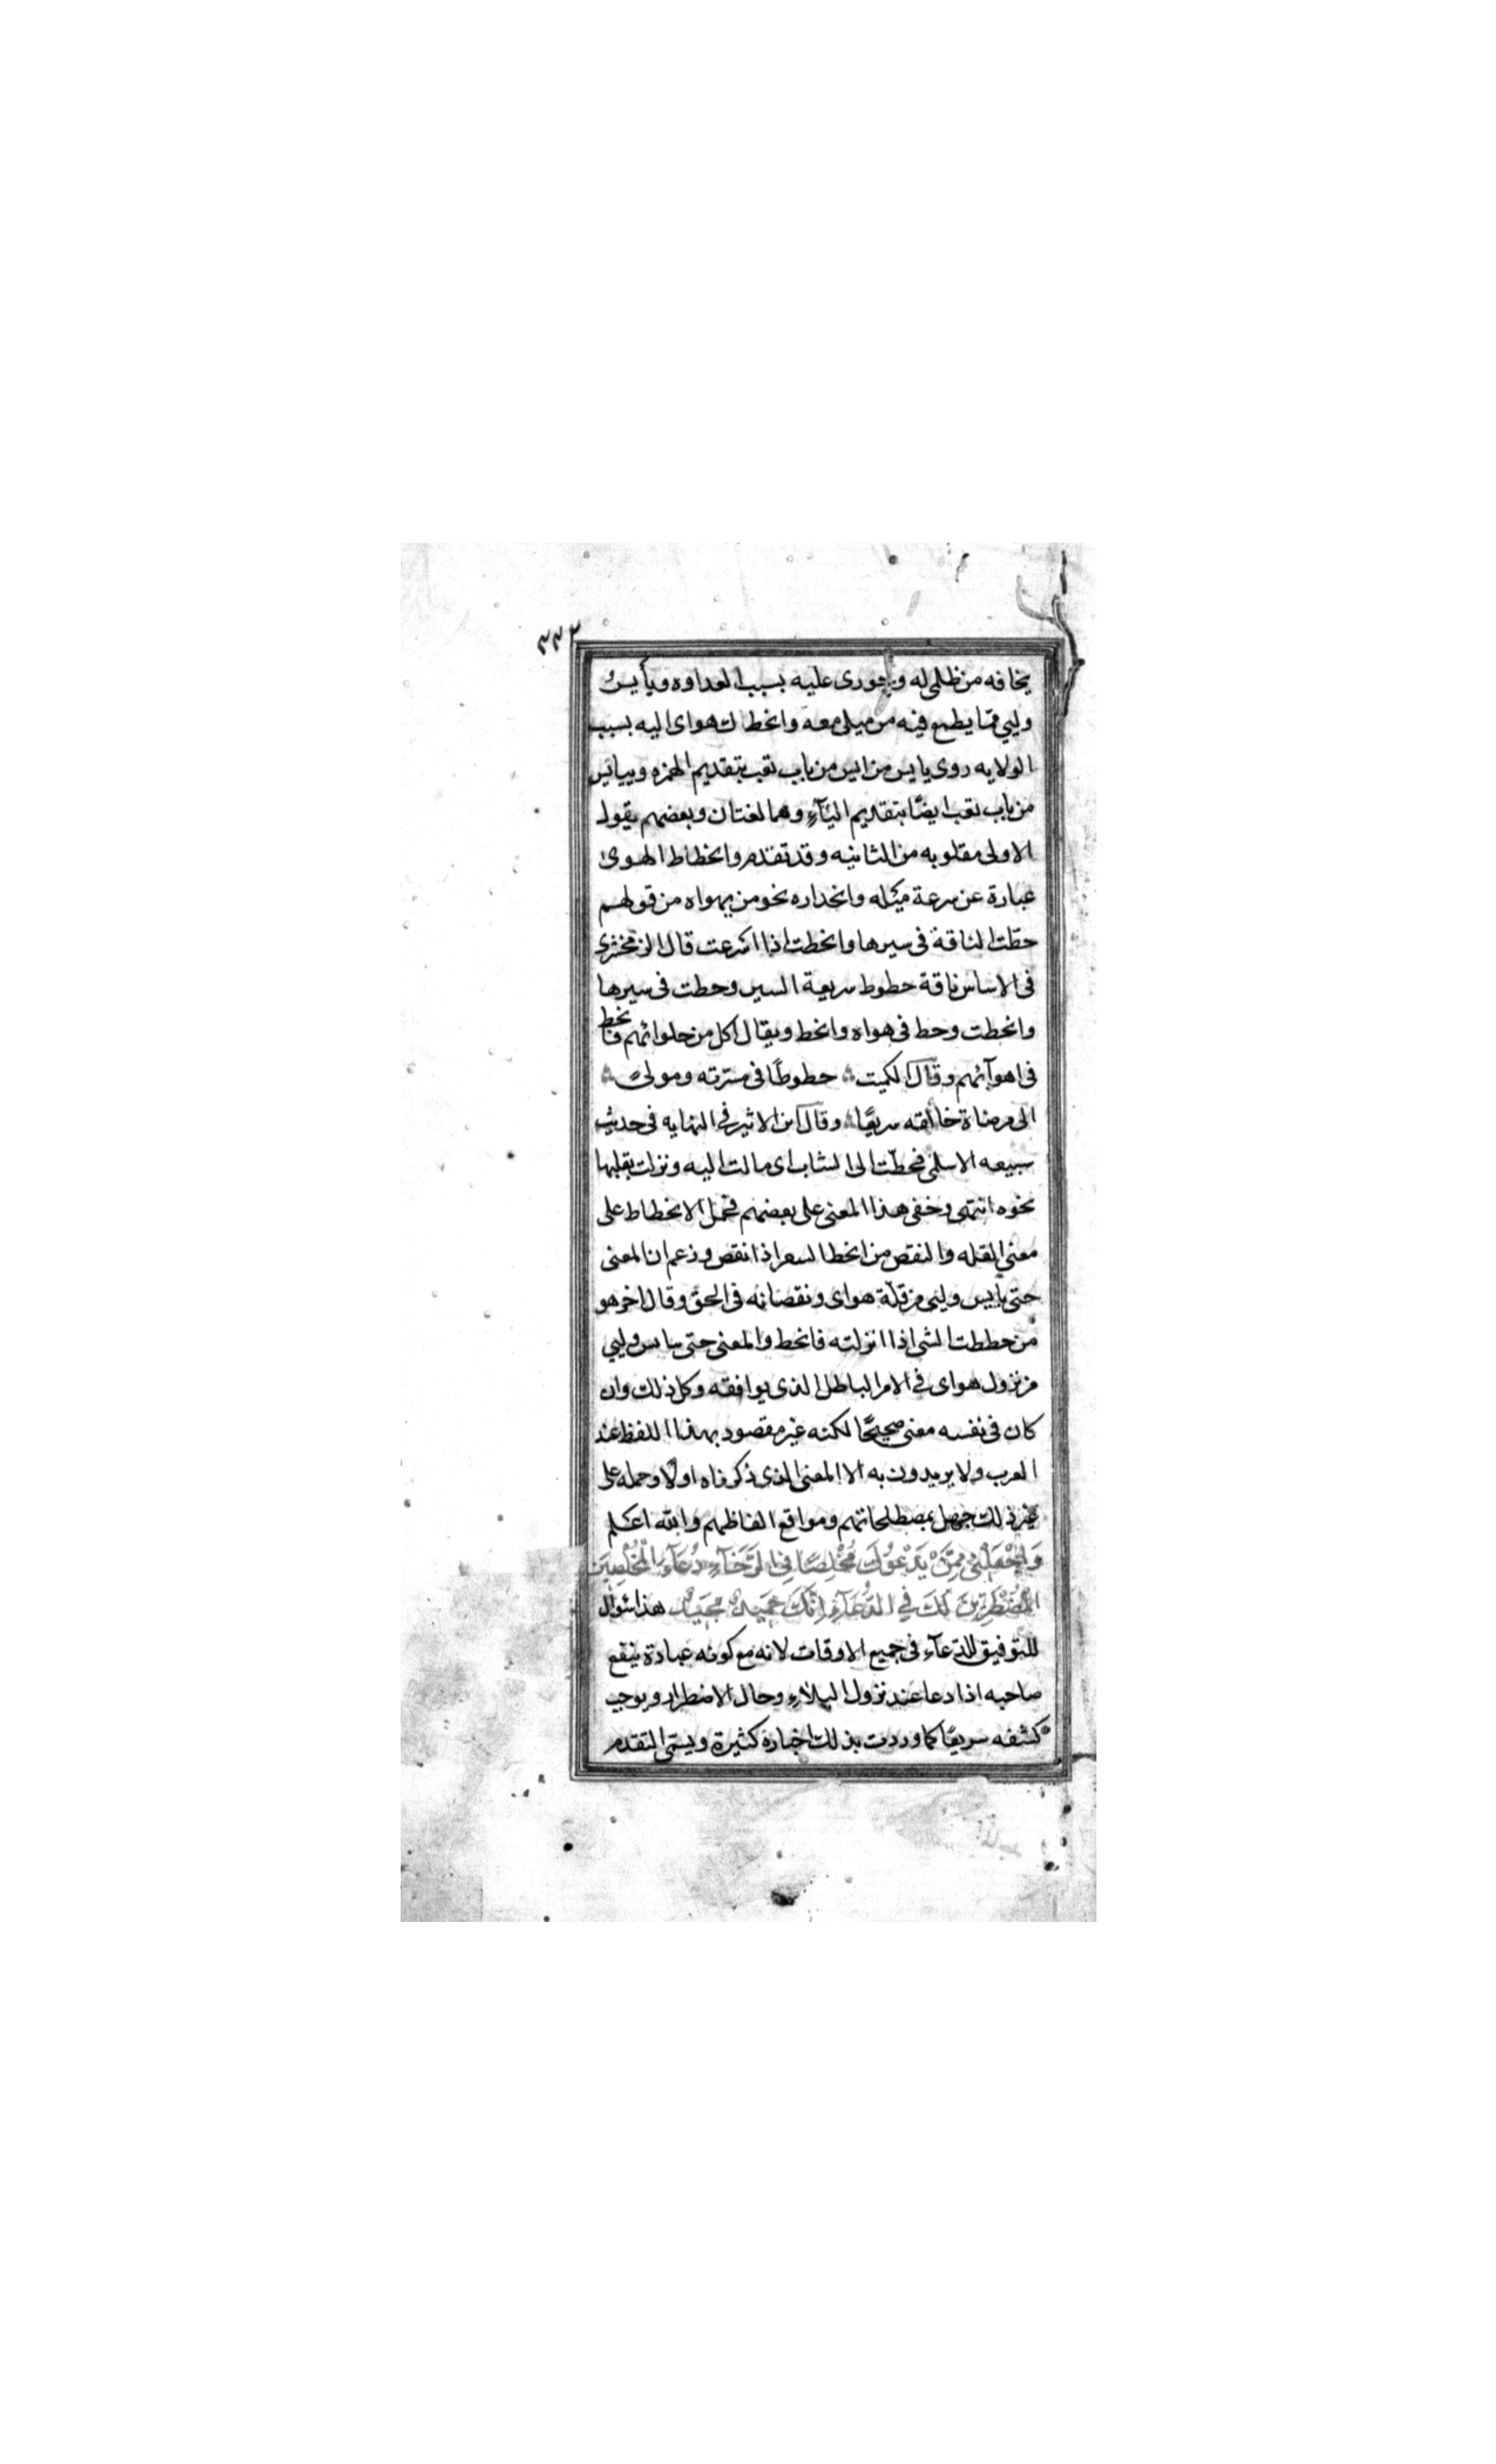 ٣٣٢
يخافه من ظلمى له وجورى عليه بسبب العداوه ويأيس
وليي ممّا يطمع فيه من ميلى معه وانحطاط هواى اليه بسبب
الولايه روى يايس من ايس من باب تعب بتقديم الهمزه وييايس
من باب تعب ايضًا بتقديم اليآء وهما لغتان وبعضهم يقول
الاولى مقلوبه من الثانيه وقد تقدم وانحطاط الهوى
عبارة عن سرعة ميله وانحداره نحو من يهواه من قولهم
حطّت الناقة فى سيرها وانحطت اذا اسرعت قال الزمخشرى
فى الاساس ناقة حطوط سريعة السير وحطت فى سيرها
وانحطت وحط فى هواه وانحط ويقال اكل من حلوائهم فانحط
فى اهوآئهم وقال الكميت حطوطًا فى مسرّته ومولىً
الى مرضاة خالقه سريعًا وقال ابن الاثير فى النهايه فى حديث
سبيعه الاسلمى فحطّت الى الشاب اى مالت اليه ونزلت بقلبها
نحوه انتهى وخفى هذا المعنى على بعضهم فحمل الانحطاط على
معنى القله والنقص من انحط السعر اذا نقص وزعم ان المعنى
حتى يايس وليى من قلّة هواى ونقصانه فى الحق وقال اخر هو
من حططت الشى اذا انزلته فانحط والمعنى حتى يايس وليي
من نزول هواى فى الامر الباطل الذى يوافقه وكل ذلك وان
كان فى نفسه معنى صحيحًا لكنه غير مقصود بهذا اللفظ عند
العرب ولا يريدون به الا المعنى الذى ذكرناه اولًا وحمله على
غير ذلك جهل بمصطلحاتهم ومواقع الفاظهم والله اعلم
وَاجْعَلْنِى مِمَّنْ يَدْعُوكَ مُخْلِصًا فِى الرَّخَآءِ دُعَآءَ الْمُخْلِصِينَ
الْمُضْطَرِّينَ لَكَ فِي الدُّعَآءِ اِنَّكَ حَمِيدٌ مَجِيدٌ هذا سؤال
للتوفيق للدّعآء فى جميع الاوقات لانه مع كونه عبادة ينفع
صاحبه اذا دعا عند نزول البلاء وحال الاضطرار ويوجب
كشفه سريعًا كما وردت بذلك اخبارة كثيرة ويسمّى التقدم